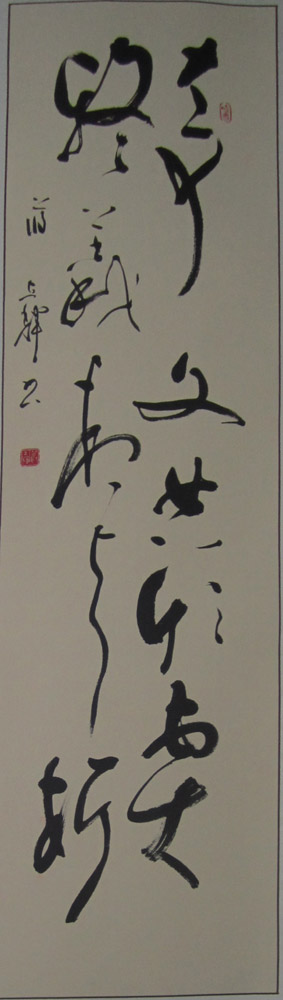 奇文共欣賞
疑義相与析